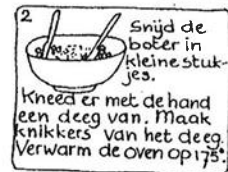 2
Snijd de
boter in
kleine stuk-
jes.
Kneed er met de hand
een deeg van. Maak
knikkers van het deeg.
Verwarm de oven op 175°.